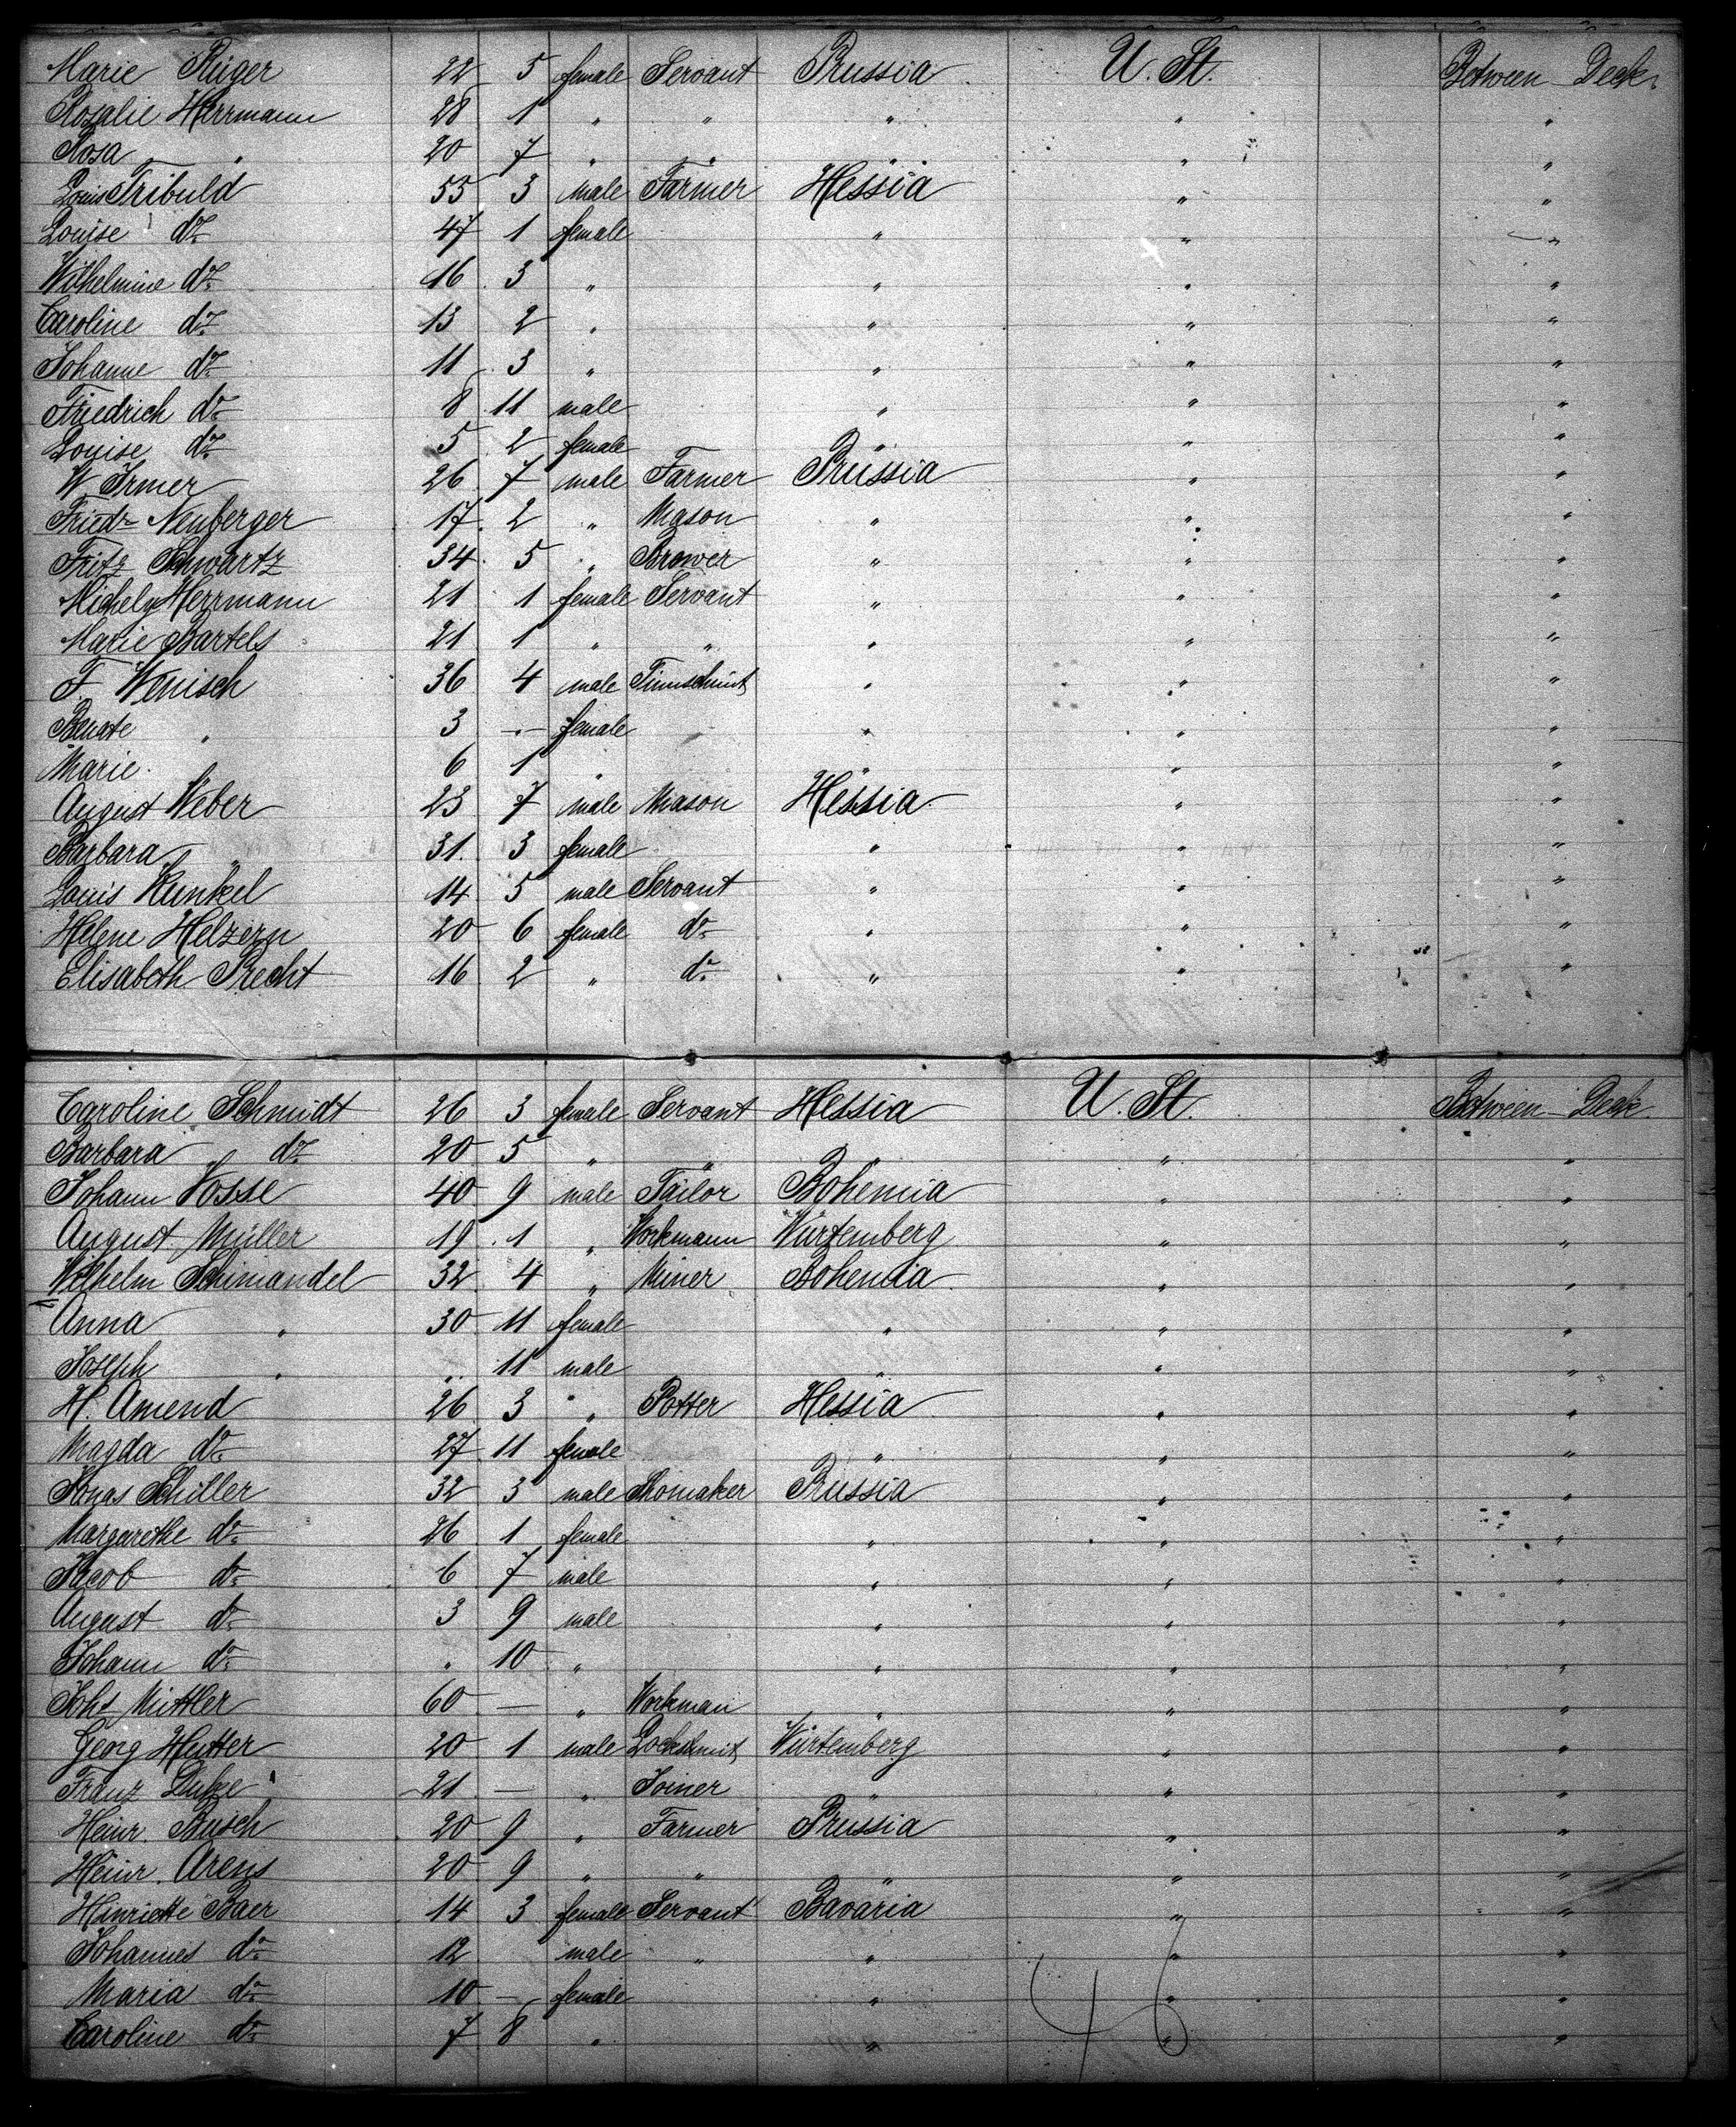 Marie Rüger 22 5 female Servant Prussia U. St. Between Deck.
Rosalie Herrmann 28 1 " " " " "
Rosa " 20 7 " " " " "
Louis Tribuld 55 3 male Farmer Hessia " "
Louise do 47 1 female " " "
Wilhelmine do 16 3 " " " "
Caroline do 13 2 " " " "
Johanne do 11 3 " " " "
Friedrich do 8 11 male " " "
Louise do 5 2 female " " "
W Irmer 26 7 male Farmer Prussia " "
Friedr Neuberger 17 2 " Mason " " "
Fritz Schwartz 34 5 " Brower " " "
Herrmann 21 1 female Servant " " "
Marie Bartels 21 1 " " " " "
F. Wenisch 36 4 male " " "
Renate " 3 — female " " "
Marie 6 1 " " " "
August Weber 23 7 male Mason Hessia " "
Barbara " 31 3 female " " "
Louis Kunkel 14 5 male Servant " " "
Helene Helzern 20 6 female do " " "
Elisabeth Precht 16 2 " do " " "
Caroline Schmidt 26 3 female Servant Hessia U. St. Between Deck
Barbara do 20 5 " " " " "
Johann Vosse 40 9 male Tailor Bohemia " "
August Müller 19 1 " Workmann Würtemberg " "
Wilhelm Schimandel 32 4 " Miner Bohemia " "
Anna " 30 11 female " " "
Joseph " " 11 male " " "
H. Amend 26 3 " Potter Hessia " "
Magda do 27 11 female " " "
Jonas Schiller 32 3 male Shomaker Prussia " "
Margarethe do 26 1 female " " "
Jacob do 6 7 male " " "
August do 3 9 male " " "
Johann do " 10 " " " "
Johs Mittler 60 — " Workman " " "
Georg Hutter 20 1 male Lockshmit Würtemberg " "
Franz 21 — " Joiner " " "
Heinr. Busch 20 9 " Farmer Prussia " "
Heinr. Arens 20 9 " " " " "
Hinriette Baer 14 3 female Servant Bavaria " "
Johannes do 12 male " " " "
Maria do 10 — female " " "
Caroline do 7 8 " " " "
46